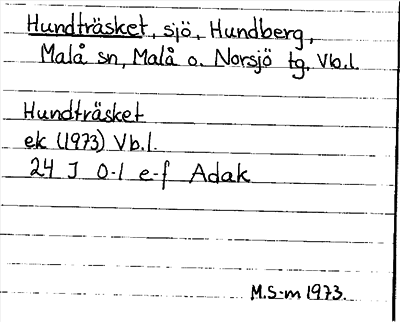 Hundträsket, sjö, Hundberg,
Malå sn, Malå o. Norsjö tg. Vb.l.
Hundträsket
ek (1973) Vb.l.
24 J 0-1 e-f Adak
M.S-m 1973.